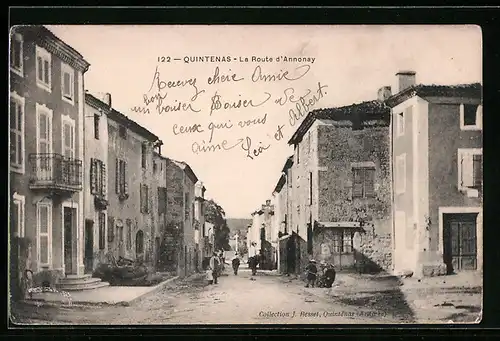 122 — QUINTENAS - La Route d'Annonay
Recevez chère Amie
un bon baiser Baiser de
ceux qui vous
aime Léa et Albert
Collection J. Besset, Quintenas (Ardèche)